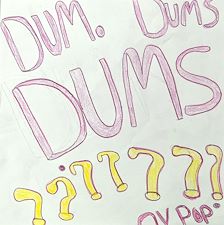 DUM. DUMS
DUMS
???????
OY POP